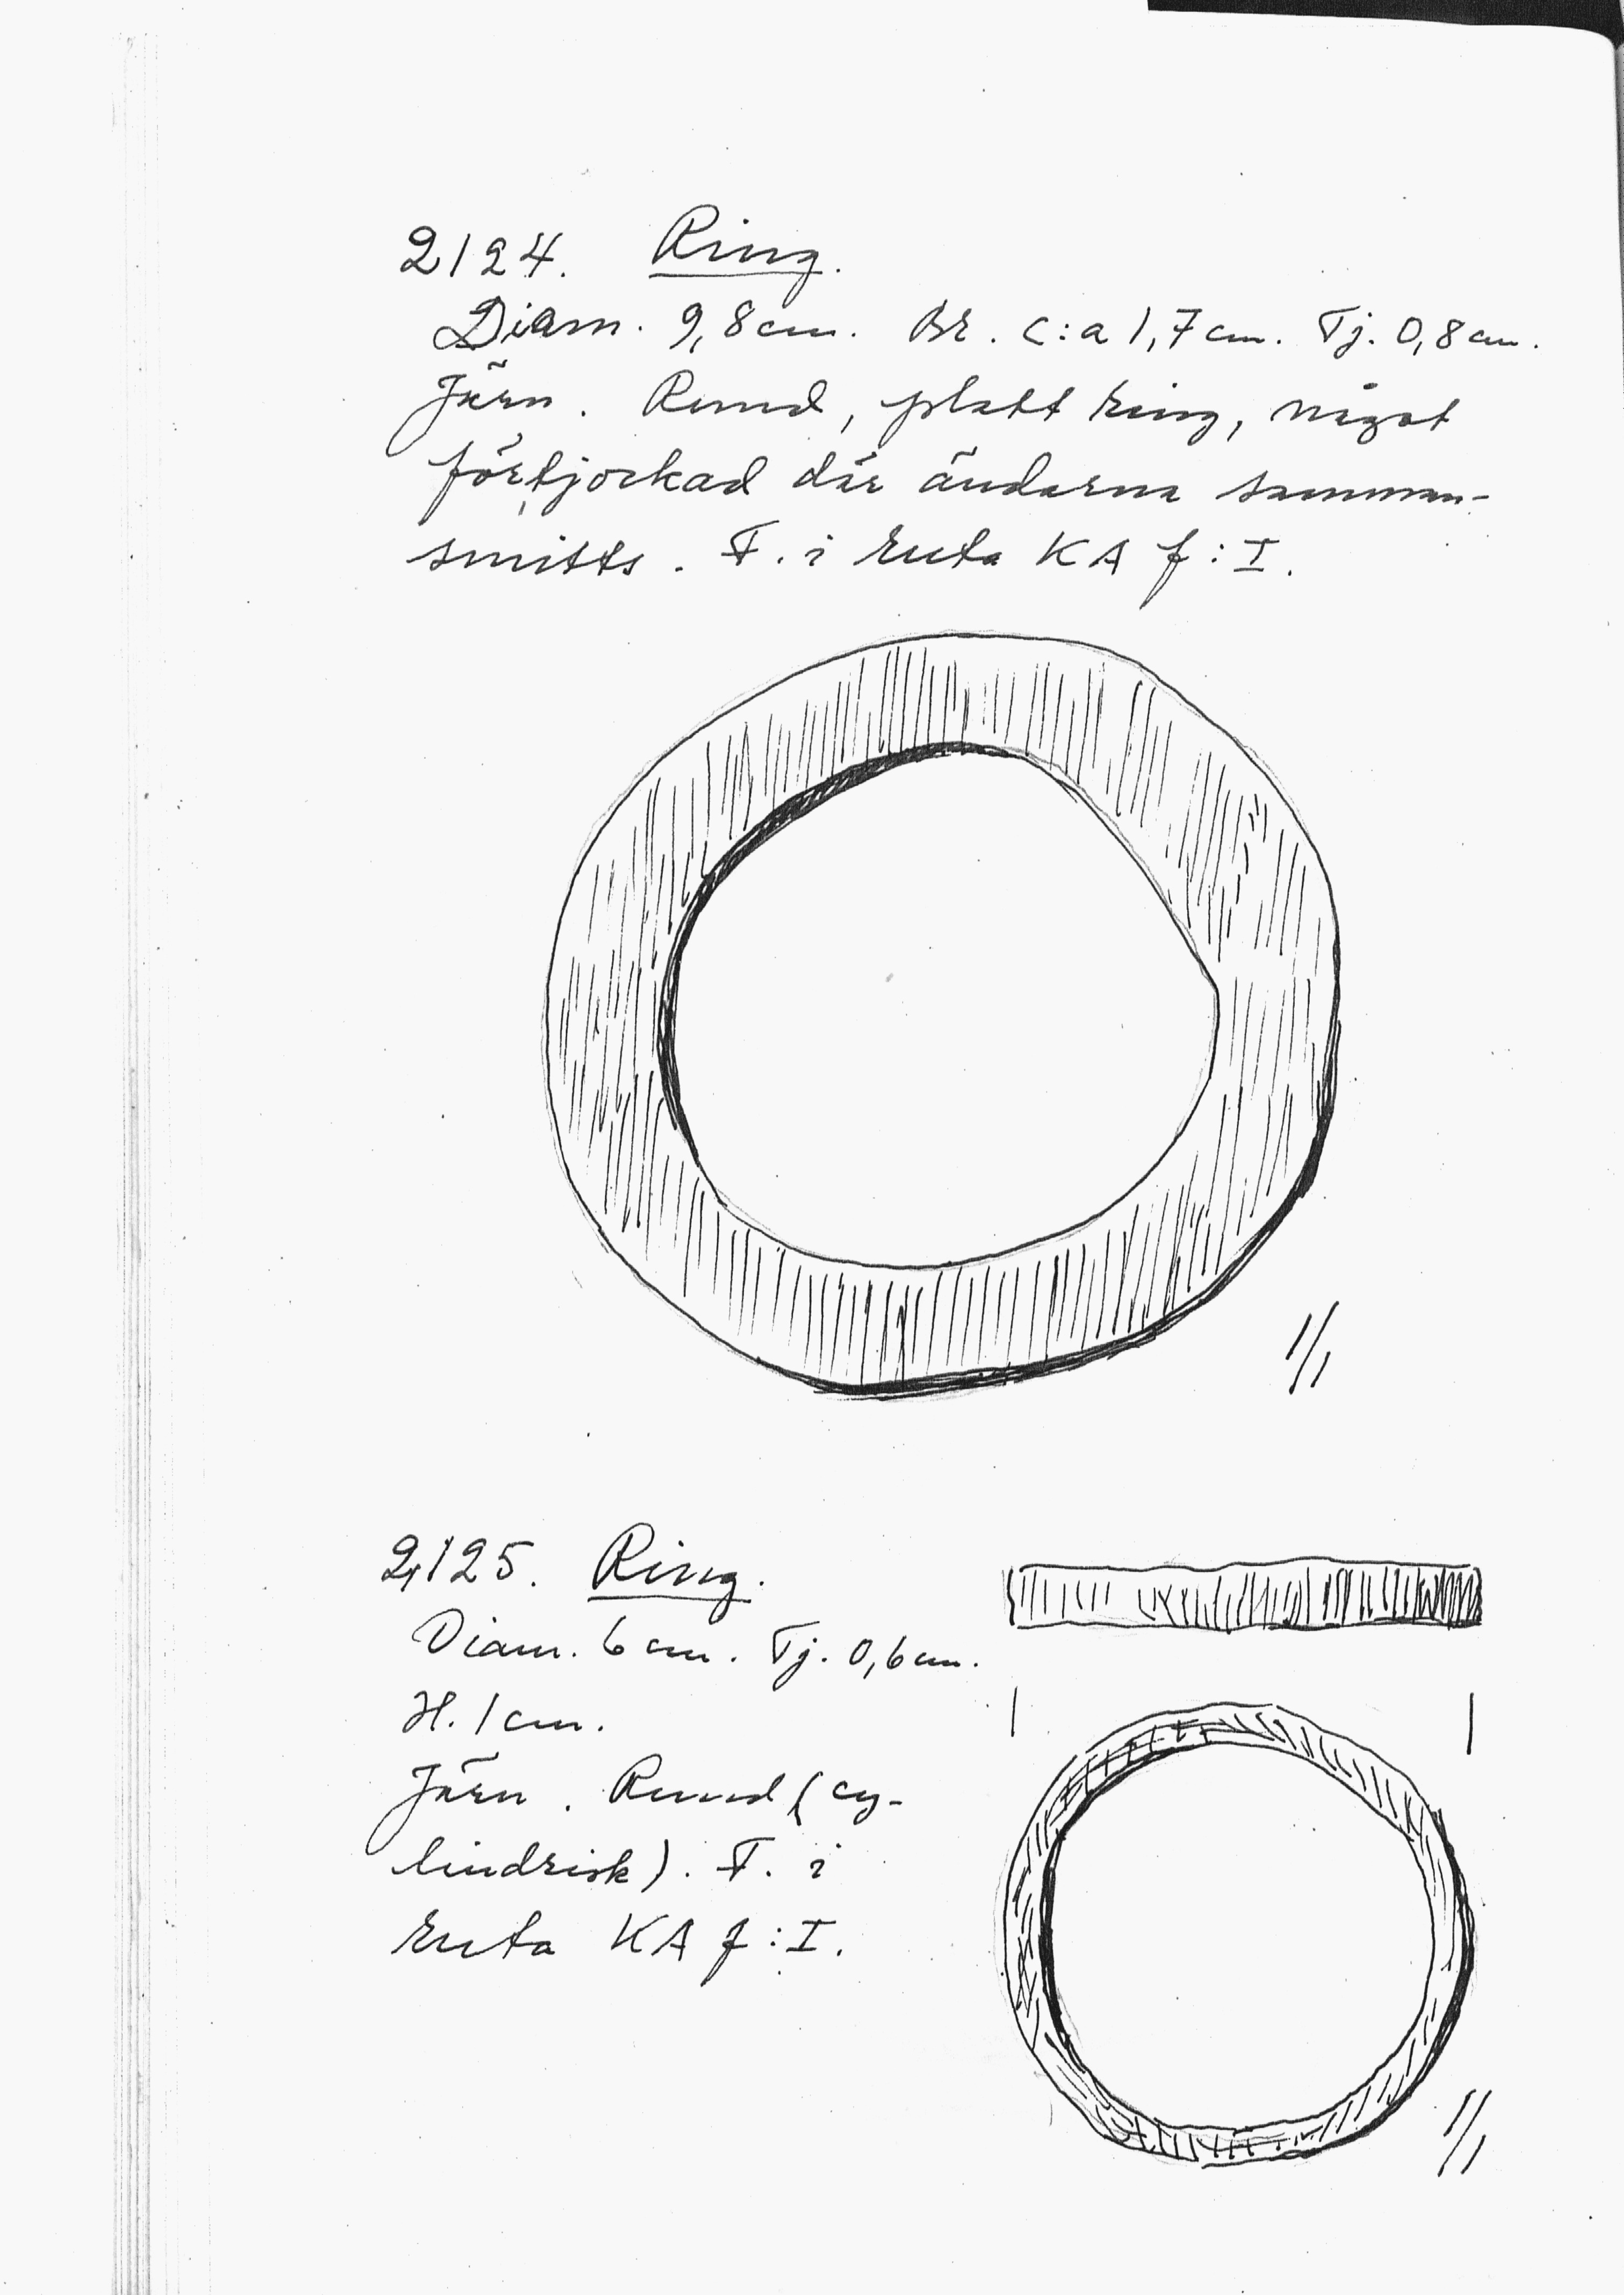 2124. Ring.
Diam. 9,8 cm. Br. c:a 1,7 cm. Tj. 0,8 cm.
Järn. Rund, platt ring, något
förtjockad där ändarna samman-
smitts. F. i ruta KA f:I.
1/1
2125. Ring.
Diam. 6 cm. Tj. 0,6 cm.
H. 1 cm.
Järn. Rund (cy-
lindrisk). F. i
ruta KA f:I.
1/1